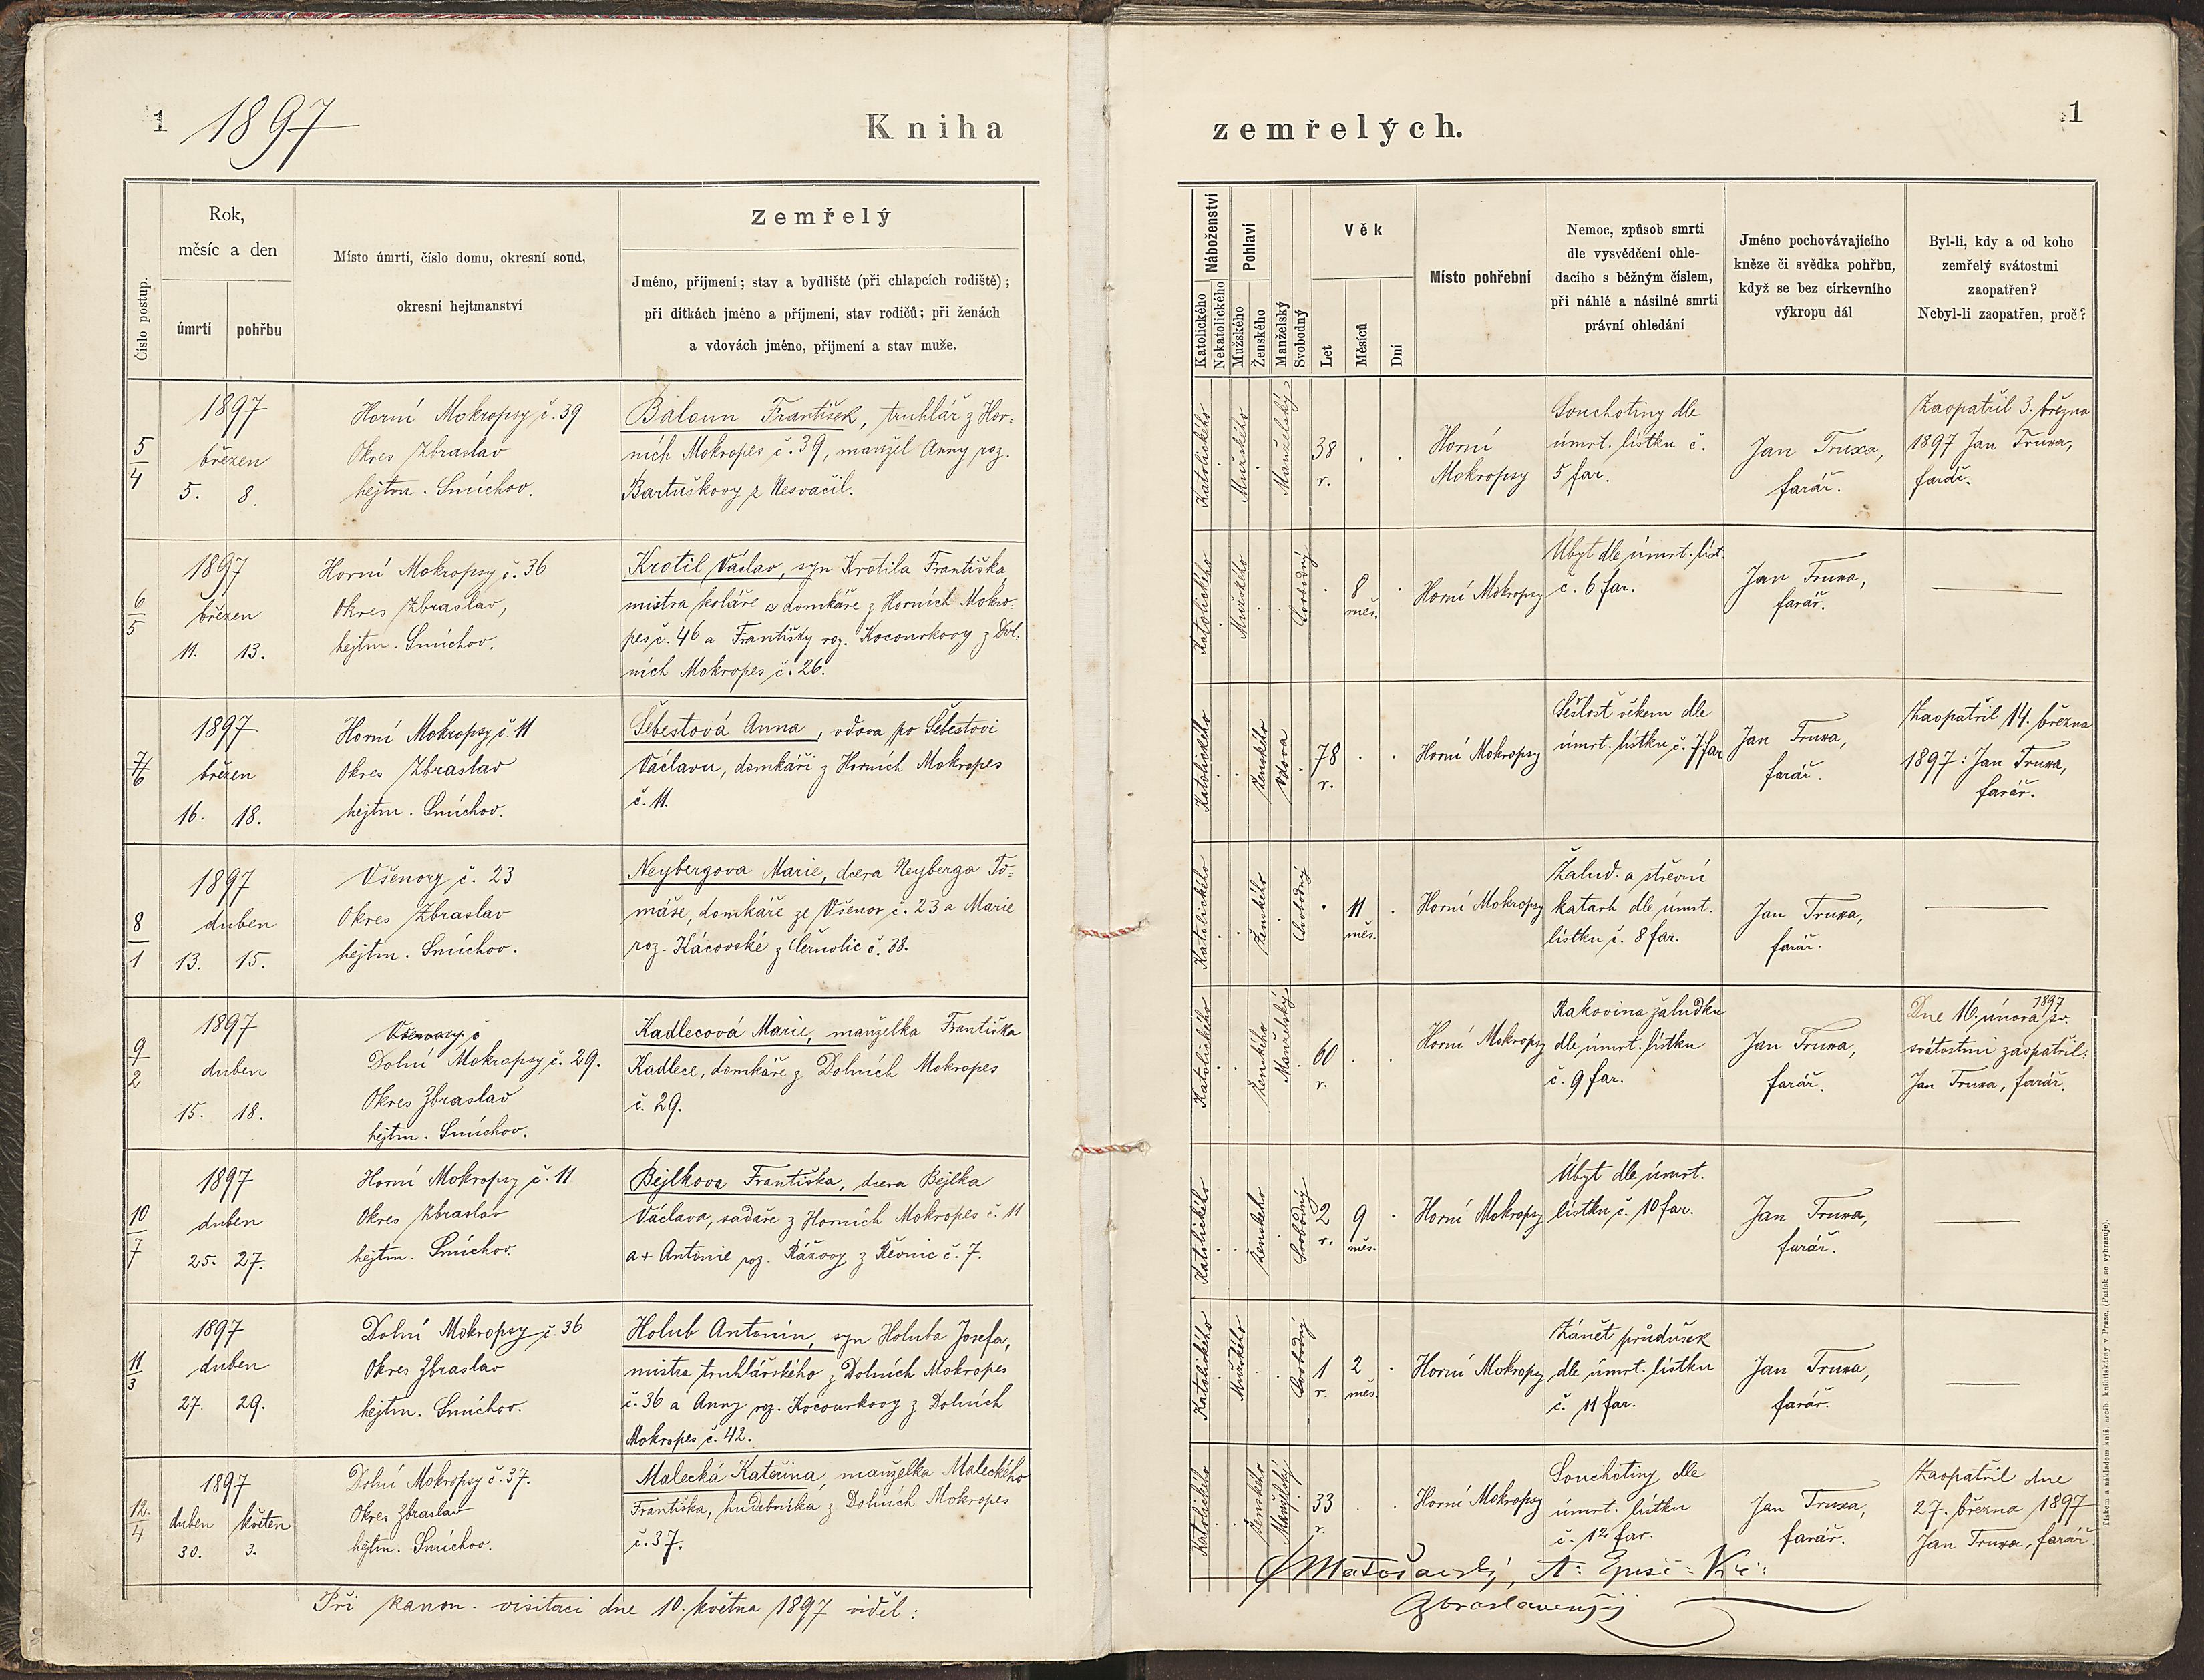 1
1897
Kniha
zemřelých.
1
Číslo postup.
Rok,
měsíc a den
úmrtí
pohřbu
Místo úmrtí, číslo domu, okresní soud,
okresní hejtmanství
Zemřelý
Jméno, příjmení; stav a bydliště (při chlapcích rodiště);
při dítkách jméno a příjmení, stav rodičů; při ženách
a vdovách jméno, příjmení a stav muže.
Náboženství
Katolického
Nekatolického
Pohlaví
Mužského
Ženského
Manželský
Svobodný
Věk
Let
Měsíců
Dní
Místo pohřební
Nemoc, způsob smrti
dle vysvědčení ohle-
dacího s běžným číslem,
při náhlé a násilné smrti
právní ohledání
Jméno pochovávajícího
kněze či svědka pohřbu,
když se bez církevního
výkropu dál
Byl-li, kdy a od koho
zemřelý svátostmi
zaopatřen?
Nebyl-li zaopatřen, proč?
5/4
1897
březen
5. 8.
Horní Mokropsy č. 39
Okres Zbraslav
hejtm. Smíchov.
Baloun František, truhlář z Hor-
ních Mokropes č. 39, manžel Anny roz.
Bartuškovy z Nesvačil.
Katolického
Mužského
Manželský
38
r.
Horní
Mokropsy
Souchotiny dle
úmrt. lístku č.
5 far.
Jan Truxa,
farář.
Zaopatřil 3. března
1897 Jan Truxa,
farář.
6/5
1897
březen
11. 13.
Horní Mokropsy č. 36
Okres Zbraslav,
hejtm. Smíchov.
Krotil Václav, syn Krotila Františka
mistra koláře a domkáře z Horních Mokro-
pes č. 46 a Františky roz. Kocourkovy z Dol.
ních Mokropes č. 26.
Katolického
Mužského
Svobodný
8
měs.
Horní Mokropsy
Úbyt dle úmrt. líst.
č. 6 far.
Jan Truxa,
farář.
7/6
1897
březen
16. 18.
Horní Mokropsy č. 11
Okres Zbraslav
hejtm. Smíchov.
Šebestová Anna, vdova po Šebestovi
Václavu, domkáři z Horních Mokropes
č. 11.
Katolického
Ženského
Vdova
78
r.
Horní Mokropsy
Sešlost věkem dle
úmrt. lístku č. 7 far
Jan Truxa,
farář.
Zaopatřil 14. března
1897: Jan Truxa,
farář.
8/1
1897
duben
13. 15.
Všenory č. 23
Okres Zbraslav
hejtm. Smíchov.
Neybergova Marie, dcera Neyberga To-
máše, domkáře ze Všenor č. 23 a Marie
roz. Kácovské z Černolic č. 38.
Katolického
Ženského
Svobodný
11
měs.
Horní Mokropsy
Žalud. a střevní
katarh dle úmrt.
lístku č. 8 far.
Jan Truxa,
farář.
9/2
1897
duben
15. 18.
Všenory č
Dolní Mokropsy č. 29.
Okres Zbraslav
hejtm. Smíchov.
Kadlecová Marie, manželka Františka
Kadlece, domkáře z Dolních Mokropes
č. 29.
Katolického
Ženského
Manželský
60
r.
Horní Mokropsy
Rakovina žaludku
dle úmrt. lístku
č. 9 far.
Jan Truxa,
farář.
1897
Dne 16. února sv.
svátostmi zaopatřil:
Jan Truxa, farář.
10/7
1897
duben
25. 27.
Horní Mokropsy č. 11
Okres Zbraslav
hejtm. Smíchov.
Bejlkova Františka, dcera Bejlka
Václava, sadaře z Horních Mokropes č. 11
a + Antonie roz. Rážovy z Řevnic č. 7.
Katolického
Ženského
Svobodný
2
r.
9
měs.
Horní Mokropsy
Úbyt dle úmrt.
lístku č. 10 far.
Jan Truxa,
farář.
11/3
1897
duben
27. 29.
Dolní Mokropsy č. 36
Okres Zbraslav
hejtm. Smíchov.
Holub Antonín, syn Holuba Josefa,
mistra truhlářského z Dolních Mokropes
č. 36 a Anny roz. Kocourkovy z Dolních
Mokropes č. 42.
Katolického
Mužského
Svobodný
1
r.
2
měs.
Horní Mokropsy
Zánět průdušek
dle úmrt. lístku
č. 11 far.
Jan Truxa,
farář.
12./4
1897
duben květen
30. 3.
Dolní Mokropsy č. 37.
Okres Zbraslav
hejtm. Smíchov.
Malecká Kateřina, manželka Maleckého
Františka, hudebníka z Dolních Mokropes
č. 37.
Katolického
Ženského
Manželský
33
r.
Horní Mokropsy
Souchotiny dle
úmrt. lístku
č. 12 far.
Jan Truxa,
farář.
Zaopatřil dne
27. března 1897
Jan Truxa, farář.
Při kanon. visitaci dne 10. května 1897 viděl:
Tiskem a nákladem kníž. arcib. knihtiskárny v Praze. (Patisk se vyhrazuje).